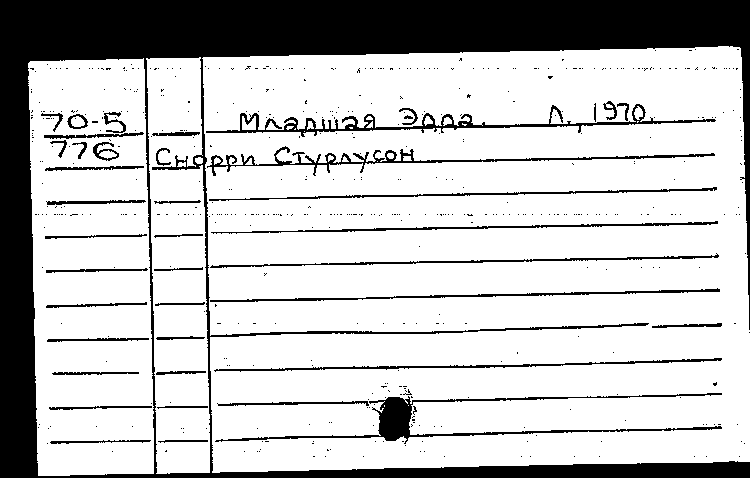 70-5 Младшая Эдда. Л., 1970.
776 Снорри Стурлусон